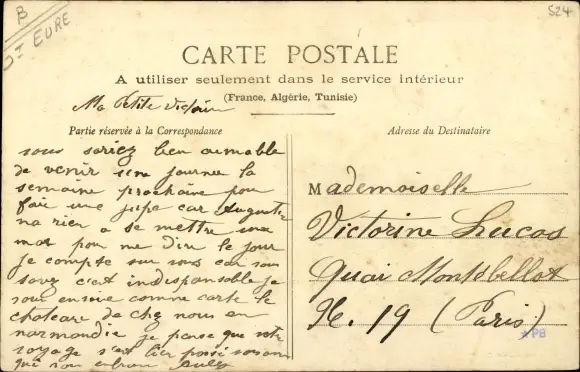 B
Dt EURE
S24
CARTE POSTALE
A utiliser seulement dans le service intérieur
(France, Algérie, Tunisie)
Ma Petite Victoire
Partie réservée à la Correspondance
vous seriez bien aimable
de venir une journee la
semaine prochaine pour
faire une jupe car Auguste
na rien a se mettre une
mot pour me dire le jour
je compte sur vous car vous
savez c'est indisponsable je
vous envoie comme carte le
chateau de chez nous en
normandie je pense que votre
voyage s'est bien passé
qui vous
Adresse du Destinataire
Mademoiselle
Victorine Lucas
Quai Montebellot
N. 19 (Paris)
★PB